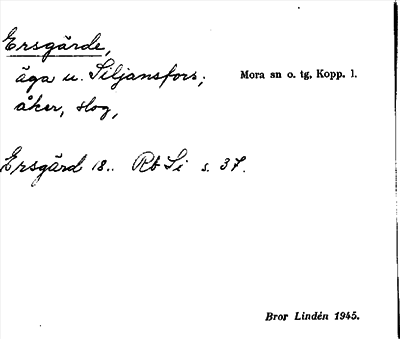 Ersgärde,
äga u. Siljansfors; Mora sn o. tg, Kopp. l.
åker, slog,
Ersgärd 18.. Rb Si s. 37.
Bror Lindén 1945.